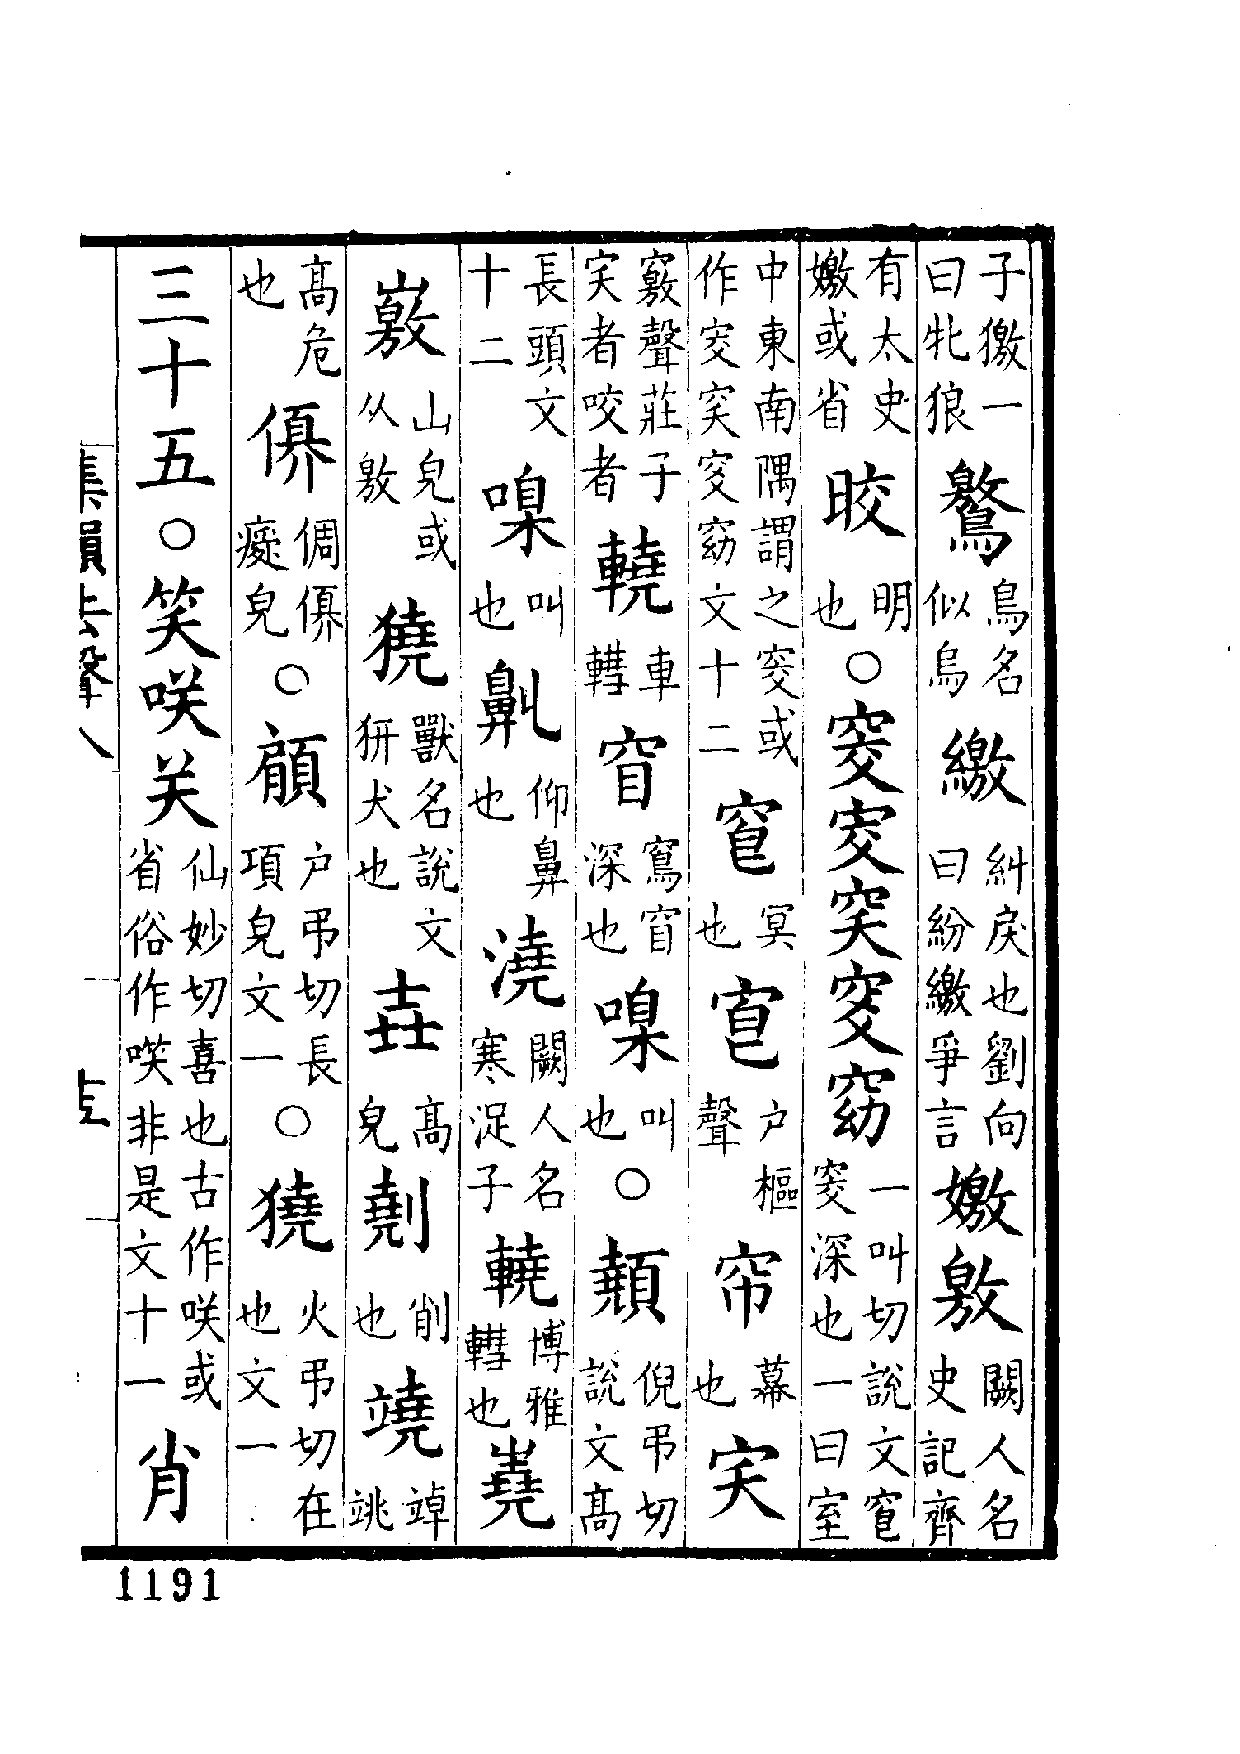 子獥一曰牝狼鷔鳥名似烏繳糾戾也劉向曰紛繳爭言嬓敫闕人名史記齊
有太史嬓或省晈明也○窔㝔穾窔窈一叫切說文窅窔深也一曰室
中東南隅謂之窔或作㝔穾窔窈文十二窅冥也㝔戶樞聲帘幕也宎
竅聲莊子宎者咬者轎車轊窅窵窅深也嘷叫也○顤倪弔切說文高
長頭文十二嘷叫也鼼仰鼻也澆闕人名寒浞子轎博雅轊也嶢
嶅山皃或从敫獟獸名說文猏犬也垚高皃㓩削也䠢竨䠷
高危也偋倜偋癡皃○顤戶弔切長項皃文一○獟火弔切在也文一
三十五○笑咲关仙妙切喜也古作咲或省俗作𥬇非是文十一肖
集韻去聲八
1191